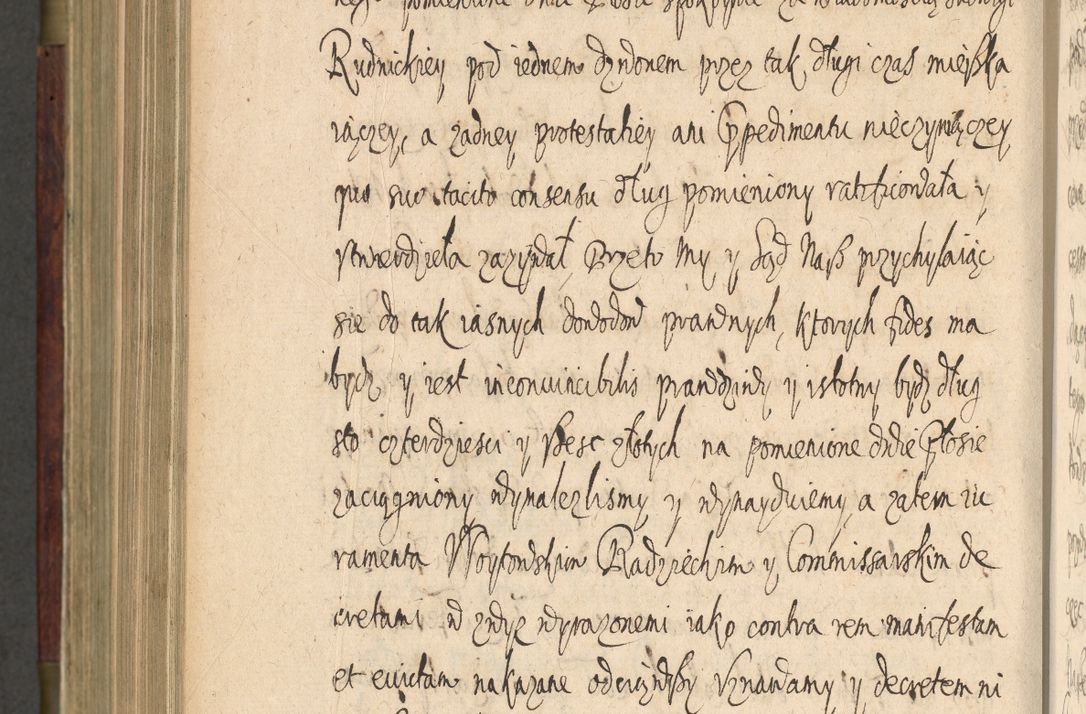 Rudnickiey pod iednem dzwonem przez tak długi czas mieszka
iączey, a żadney protestatiey ani Jmpedimentu nieczyniączey
quo suo tacito consensu dług pomieniony ratificowała y
stwierdzieła zażywał, Przeto My y Sąd Nasz przychylaiąc
się do tak iasnych dowodow prawnych, ktorych fides ma
bydz y iest inconvincibilis prawdziwy y istotny bydz dług
sto czterdziesci y szesc złotych na pomienione dwie Płosie
zaciągniony wynalezlismy y wynayduiemy, a zatem iu
ramenta Woytowskim Radzieckim y Commissarskim de
cretami w zwyz wyrażonemi iako contra rem manifestam
et evictam nakazane odciąwszy Uznawamy y decretem ni